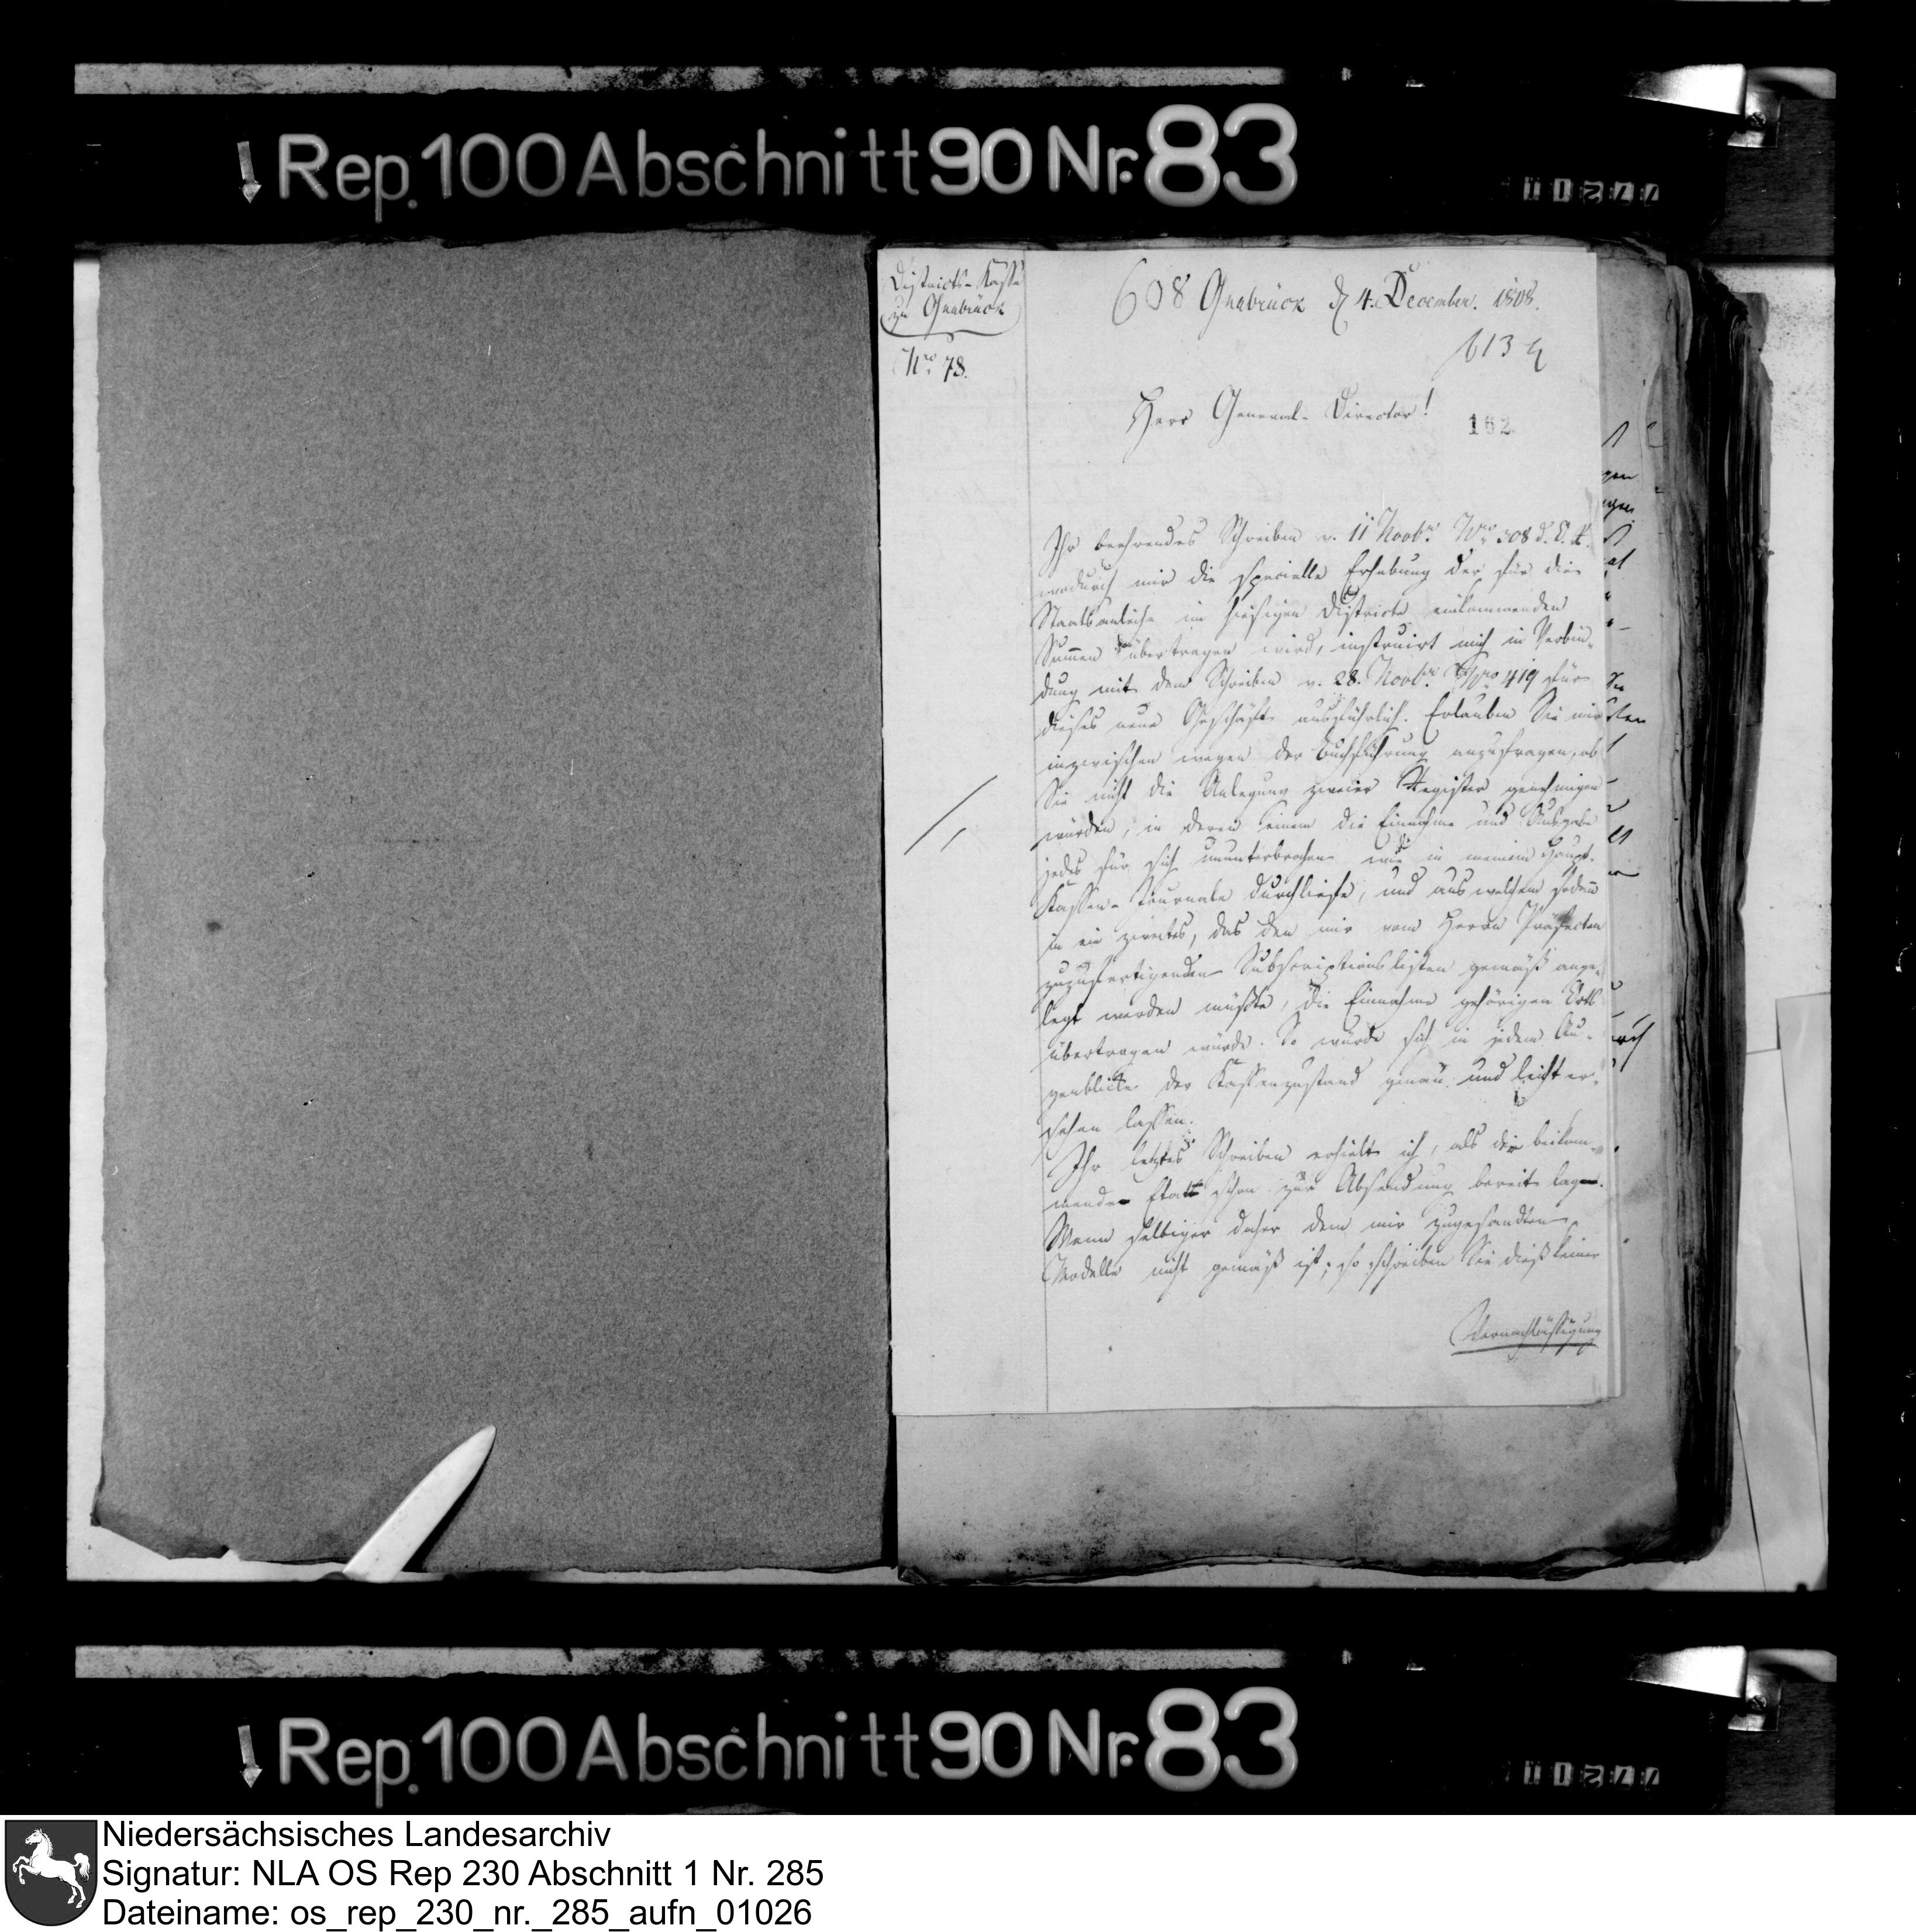 Rep. 100 Abschnitt 90 Nr. 83
Districts-Kasse
zu Osnabrück
Nro. 78.
608 Osnabrück d 4. December. 1808.
613
Herr General-Director!
162
Ihr beehrendes Schreiben v. 11 Novbr. Nro 308 d. O. A.
wodurch mir die specielle Erhebung der für die
Staatsanleihe im hiesigen Districte einkommenden
Summen übertragen wird, instruirt mich in Verbin-
dung mit dem Schreiben v. 28. Novbr. Nro 419 für
dieses neue Geschäft ausführlich. Erlauben Sie mir
inzwischen wegen der Buchführung anzufragen, ob
Sie nicht die Anlegung zweier Register genehmigen
würden, in deren einem die Einnahme und Ausgabe
jedes für sich ununterbrochen wie in meinem Haupt-
Kassen-Journale durchliefe, und aus welchem sodann
in ein zweites, das den mir vom Herrn Präfecten
zuzufertigenden Subscriptionslisten gemäß ange-
legt werden müßte, die Einnahme gehörigen Orts
übertragen würde. So würde sich in jedem Au-
genblicke der Kassenzustand genau und leicht er-
sehen lassen.
Ihr letztes Schreiben erhielt ich, als der beikom-
mende Etat schon zur Absendung bereit lag.
Wenn selbiger daher dem mir zugesandten
Modelle nicht gemäß ist; so schreiben Sie dieß keiner
Vernachlässigung
Rep. 100 Abschnitt 90 Nr. 83
Niedersächsisches Landesarchiv
Signatur: NLA OS Rep 230 Abschnitt 1 Nr. 285
Dateiname: os_rep_230_nr._285_aufn_01026